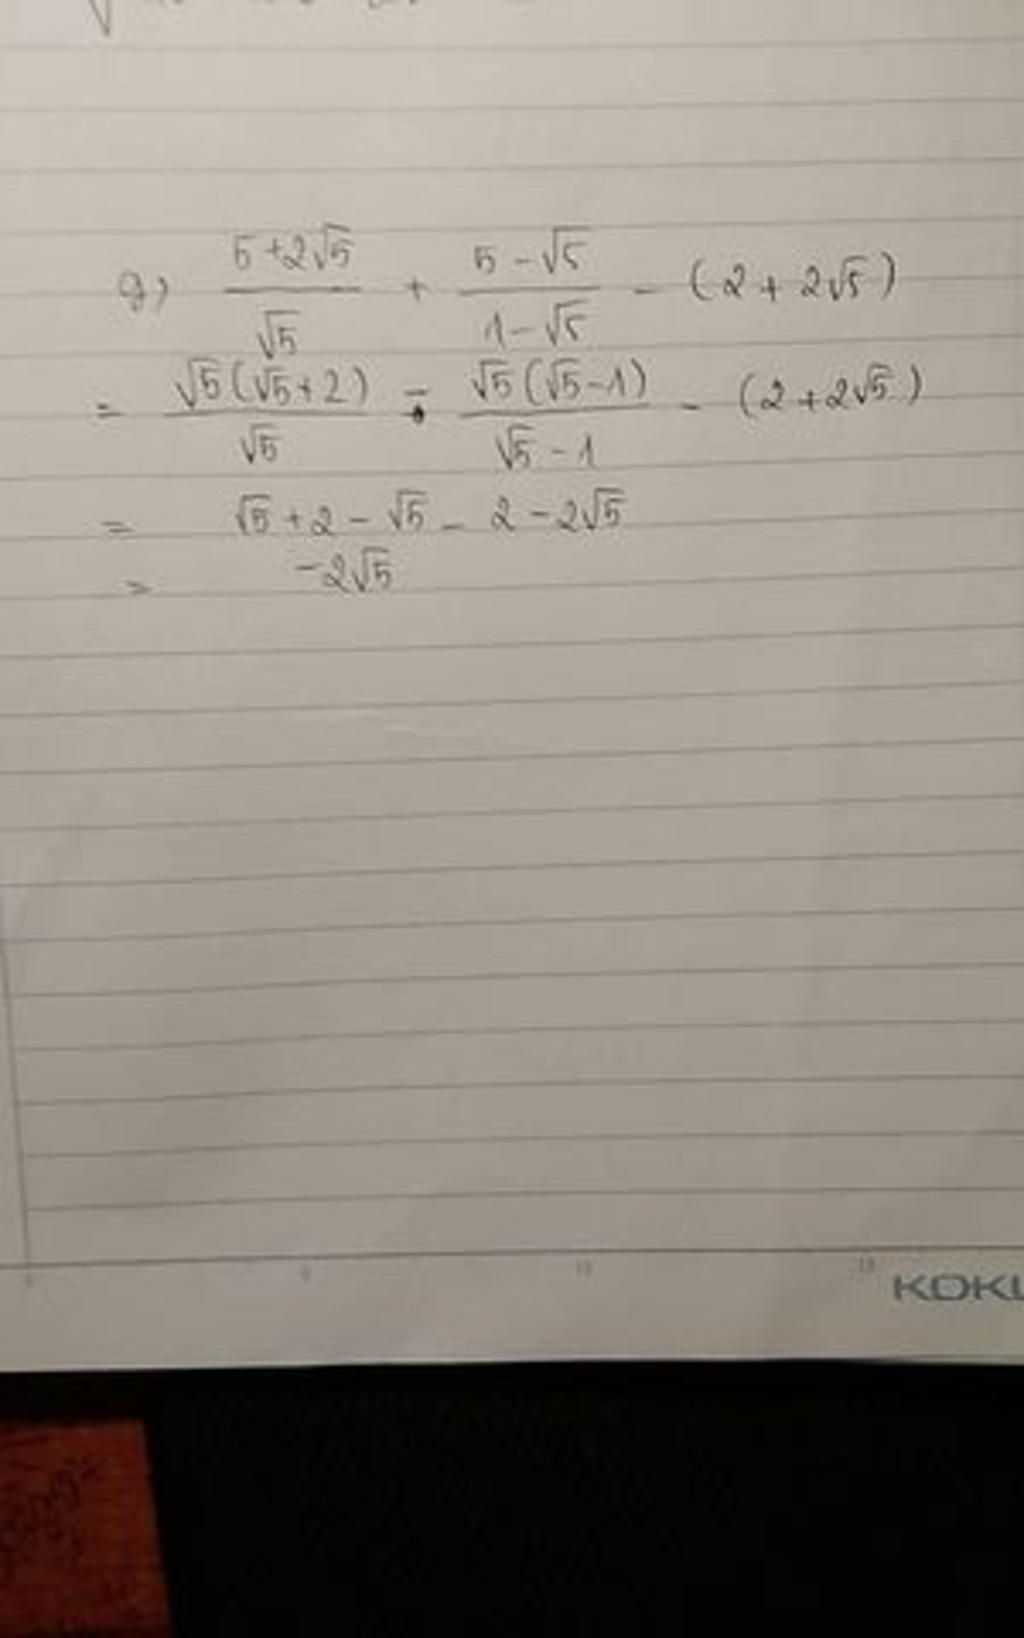 g) \frac{5+2\sqrt{5}}{\sqrt{5}} + \frac{5-\sqrt{5}}{1-\sqrt{5}} - (2+2\sqrt{5})
= \frac{\sqrt{5}(\sqrt{5}+2)}{\sqrt{5}} - \frac{\sqrt{5}(\sqrt{5}-1)}{\sqrt{5}-1} - (2+2\sqrt{5})
= \sqrt{5}+2-\sqrt{5}-2-2\sqrt{5}
= -2\sqrt{5}